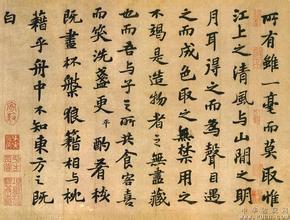 所有雖一毫而莫取惟
江上之清風與山間之明
月耳得之而為聲目遇
之而成色取之無禁用之
不竭是造物者之無盡藏
也而吾與子之所共食客喜
而笑洗盞更平酌肴核
既盡杯盤狼藉相與枕
藉乎舟中不知東方之既
白